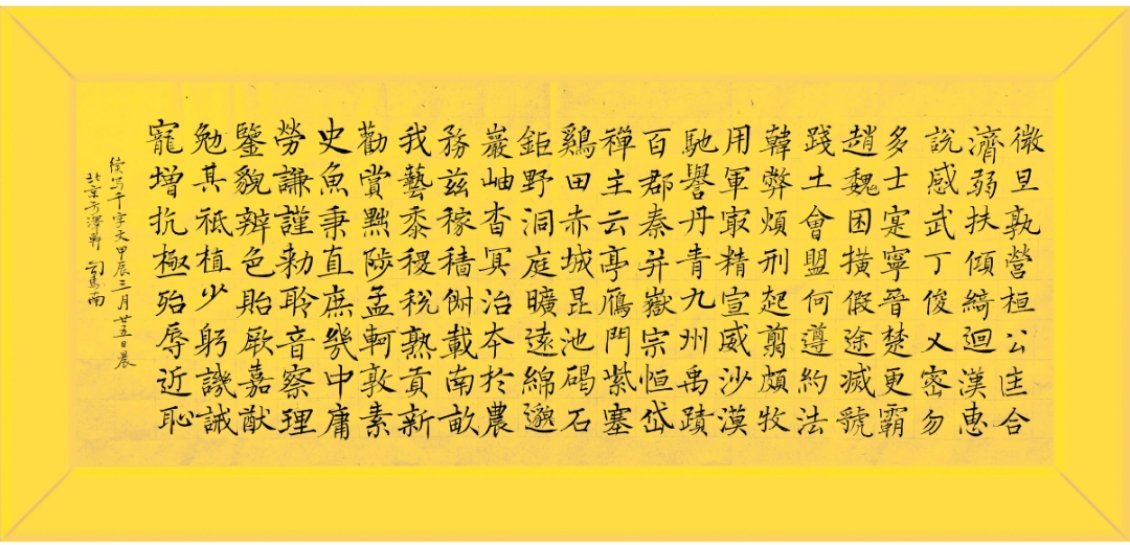 微旦孰營桓公匡合
濟弱扶傾綺迴漢惠
說感武丁俊乂密勿
多士寔寧晉楚更霸
趙魏困橫假途滅虢
踐土會盟何遵約法
韓弊煩刑起翦頗牧
用軍冣精宣威沙漠
馳譽丹青九州禹蹟
百郡秦并嶽宗恒岱
禪主云亭鴈門紫塞
鷄田赤城昆池碣石
鉅野洞庭曠遠綿邈
巖岫杳冥治本於農
務茲稼穡俶載南畝
我藝黍稷稅熟貢新
勸賞黜陟孟軻敦素
史魚秉直庶幾中庸
勞謙謹勑聆音察理
鑒貌辨色貽厥嘉猷
勉其祗植少躬譏誡
寵增抗極殆辱近恥
續写千字文甲辰三月廿五日晨
北京方澤軒 司馬南